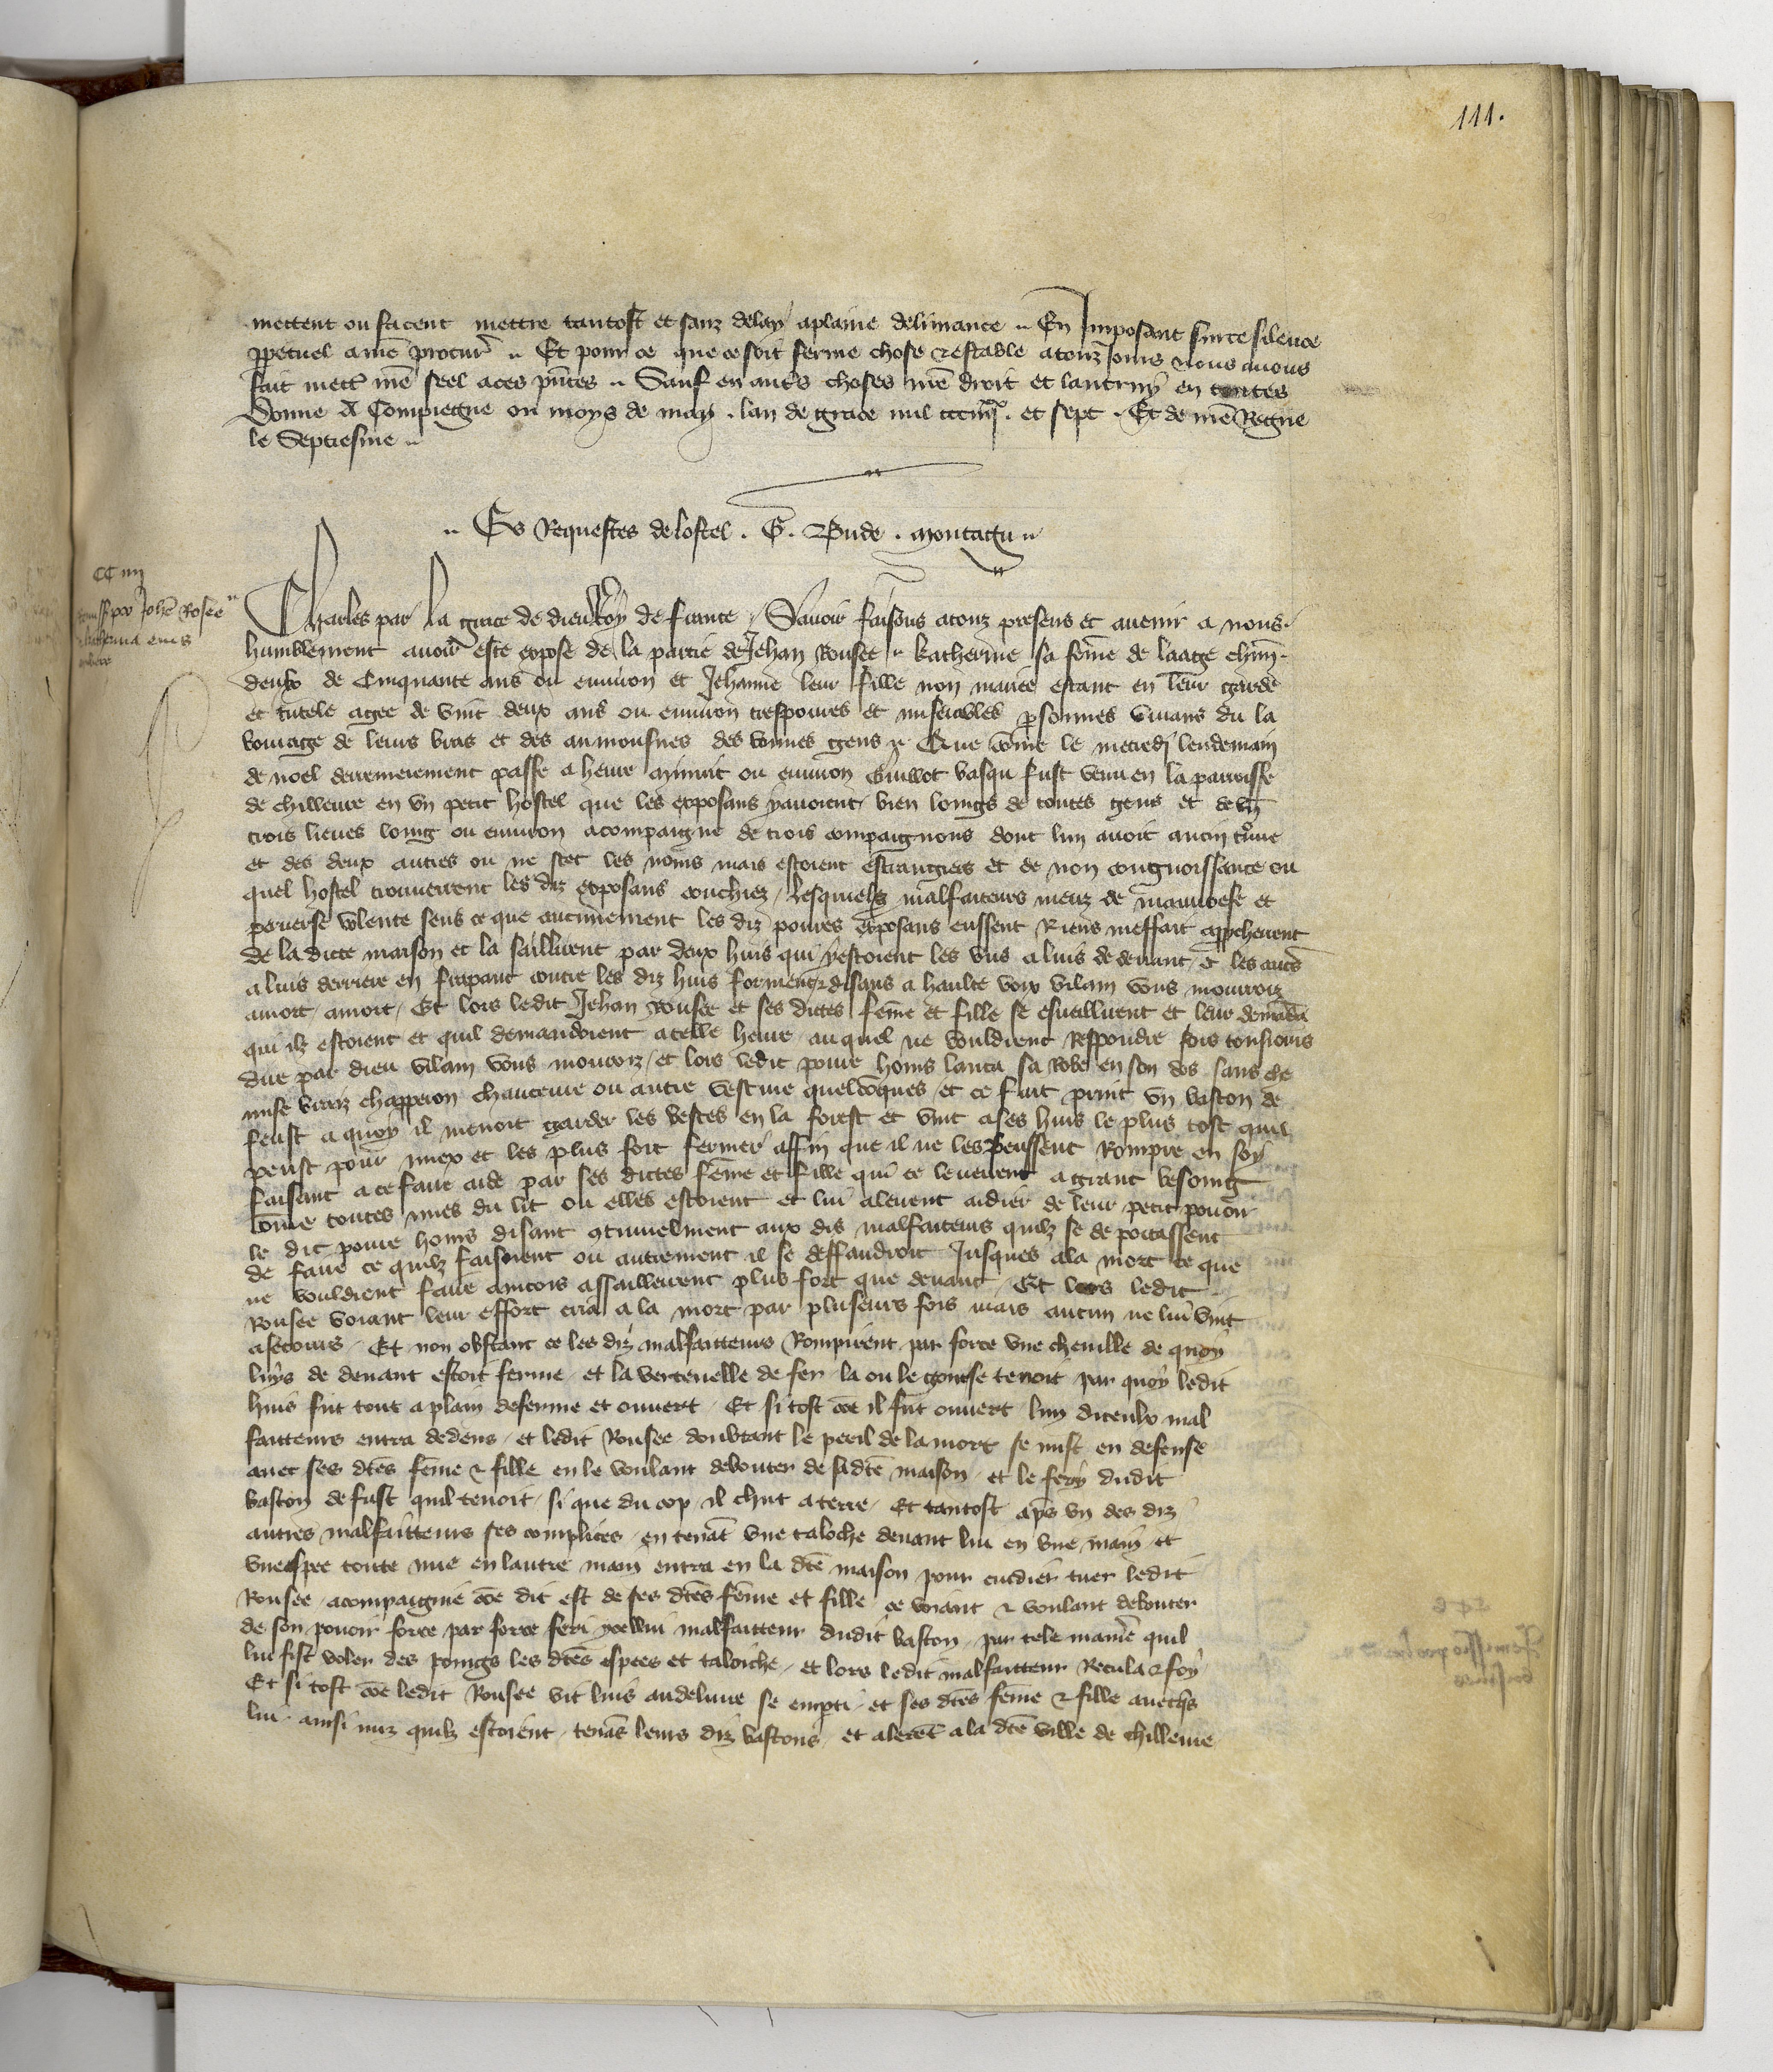 111.
mettent ou facent mettre tantost et sanz delay aplaine deliurance .. En Imposant sur ce silence
ppetuel a nrẽ procur̃ .. Et pour ce que ce soit ferme chose et estable a touz Iours nous auons
fait mettr̃ nrẽ seel a ces pñtes .. Sauf en autr̃s choses nrẽ droit et lautruy en toutes
Donne A Compiegne ou moys de may . lan de grace mil ccciiij . et sept . Et de nrẽ Regne
le Septiesme ..
.. Es Requestes de lostel . G . Bude . montagu ..
CC iiij
Remissio pro Johẽ Rosee
Katherina eius
Charles par la grace de dieu Roy de france . Sauoir faisons a touz presens et auenir a nous
humblement auoir este expose de la partie de Jehan Rousee .. Katherine sa fem̃e de laage chũn
deulx de Cinquante ans ou enuiron et Jehanne leur fille non mariee estant en leur garde
et tutele agee de vint deux ans ou enuiron trespoures et miserables psonnes viuans du la
bourage de leurs bras et des aumosnes des bonnes gens .. Que cõme le mecredi lendemain
de noel derrenierement passe a heure mimuit ou enuiron Guillot basqu fust venu en la parroisse
de chilleure en vn petit hostel que les exposans y auoient / bien loings de toutes gens et de vñ
trois lieues loing ou enuiron acompaigne de trois compaignons dont lun auoit a nom
et des deux autres on ne scet les noms mais estoient estrangiers et de non congnoissance ou
quel hostel trouuerent les diz exposans couchiez / lesquielx malfaiteurs meuz de mauuoese et
peruerse volente sens ce que aucunement les diz poures exposans eussent Riens meffait approcherent
de la dicte maison et la saillirent par deux huis qui y estoient les vns a luis de deuant / et les autr̃s
a luis derriere en frapant contre les diz huis forment et disans a haulte voix vilain vous mourroiz
amort / amort / Et lors ledit Jehan Rousee et ses dictes fem̃e et fille se esueillirent et leur demãda
qui ilz estoient et quil demandoient a telle heure / au quel ne vouldrent Respondre fors tousiours
dire par dieu vilain vous mourroiz / et lors ledit poure homs lanca sa robe en son dos sans che
mise braiz chapperon chauceure ou autre vesture quelcõques / et ce fait print vn baston de
feust a quoy il menoit garder les bestes en la forest et vint a ses huis le plus tost quil
peust pour miex et les plus fort fermer affin que il ne les peussent Rompre en soy
faisant a ce faire aide par ses dictes fem̃e et fille qui ce leuerent a grant besoing
cõme toutes nues du lit ou elles estoient et lui alerent aidier de leur petit pouoir
le dit poure homs disant continuelment aux dis malfaiteurs quilz se deportassent
de faire ce quilz faisoient ou autrement il se deffandroit Jusques a la mort ce que
ne vouldrent faire aincois assaillerent plus fort que deuant / Et lors ledit
Rousee voiant leur effort cria a la mort par pluseurs fois mais aucun ne lui vint
a secours / Et non obstant ce les diz malfaitteurs Rompirent par force vne cheuille de quoy
luys de deuant estoit ferme / et la verteuelle de fer / la ou le gont se tenoit par quoy ledit
huis fut tout a plain desferme et ouuert / Et si tost cõe il fut ouuert lun diceulx mal
faitteurs entra dedens / et ledit Rousee doubtant le peril de la mort se mist en defense
auec ses dt̃es fem̃e & fille en le voulant debouter de sa dt̃e maison / et le fery dudit
baston de fust quil tenoit / si que du cop il chut a terre / Et tantost ap̃s vn des diz
autres malfaitteurs ses complices / en tenãt vne taloche deuant lui en vne main / et
vne espee toute nue en lautre main entra en la dt̃e maison pour cuidier tuer ledit
Rousee / acompaigne cõe dit est de ses dt̃es fem̃e et fille / ce voiant & voulant debouter
de son pouoir force par force feri ycellui malfaitteur dudit baston / par tele maniẽ quil
lui fist voler des poings les dt̃es espees et taloiche / et lors ledit malfaitteur Recula & foy
Et si tost cõe ledit Rousee vit luis au deliure se en parti / et ses dt̃es fem̃e & fille auecq̃s
lui / ainsi nuz quilz estoient / tenãs leurs diz bastons / et alerẽt a la dt̃e ville de chilleure